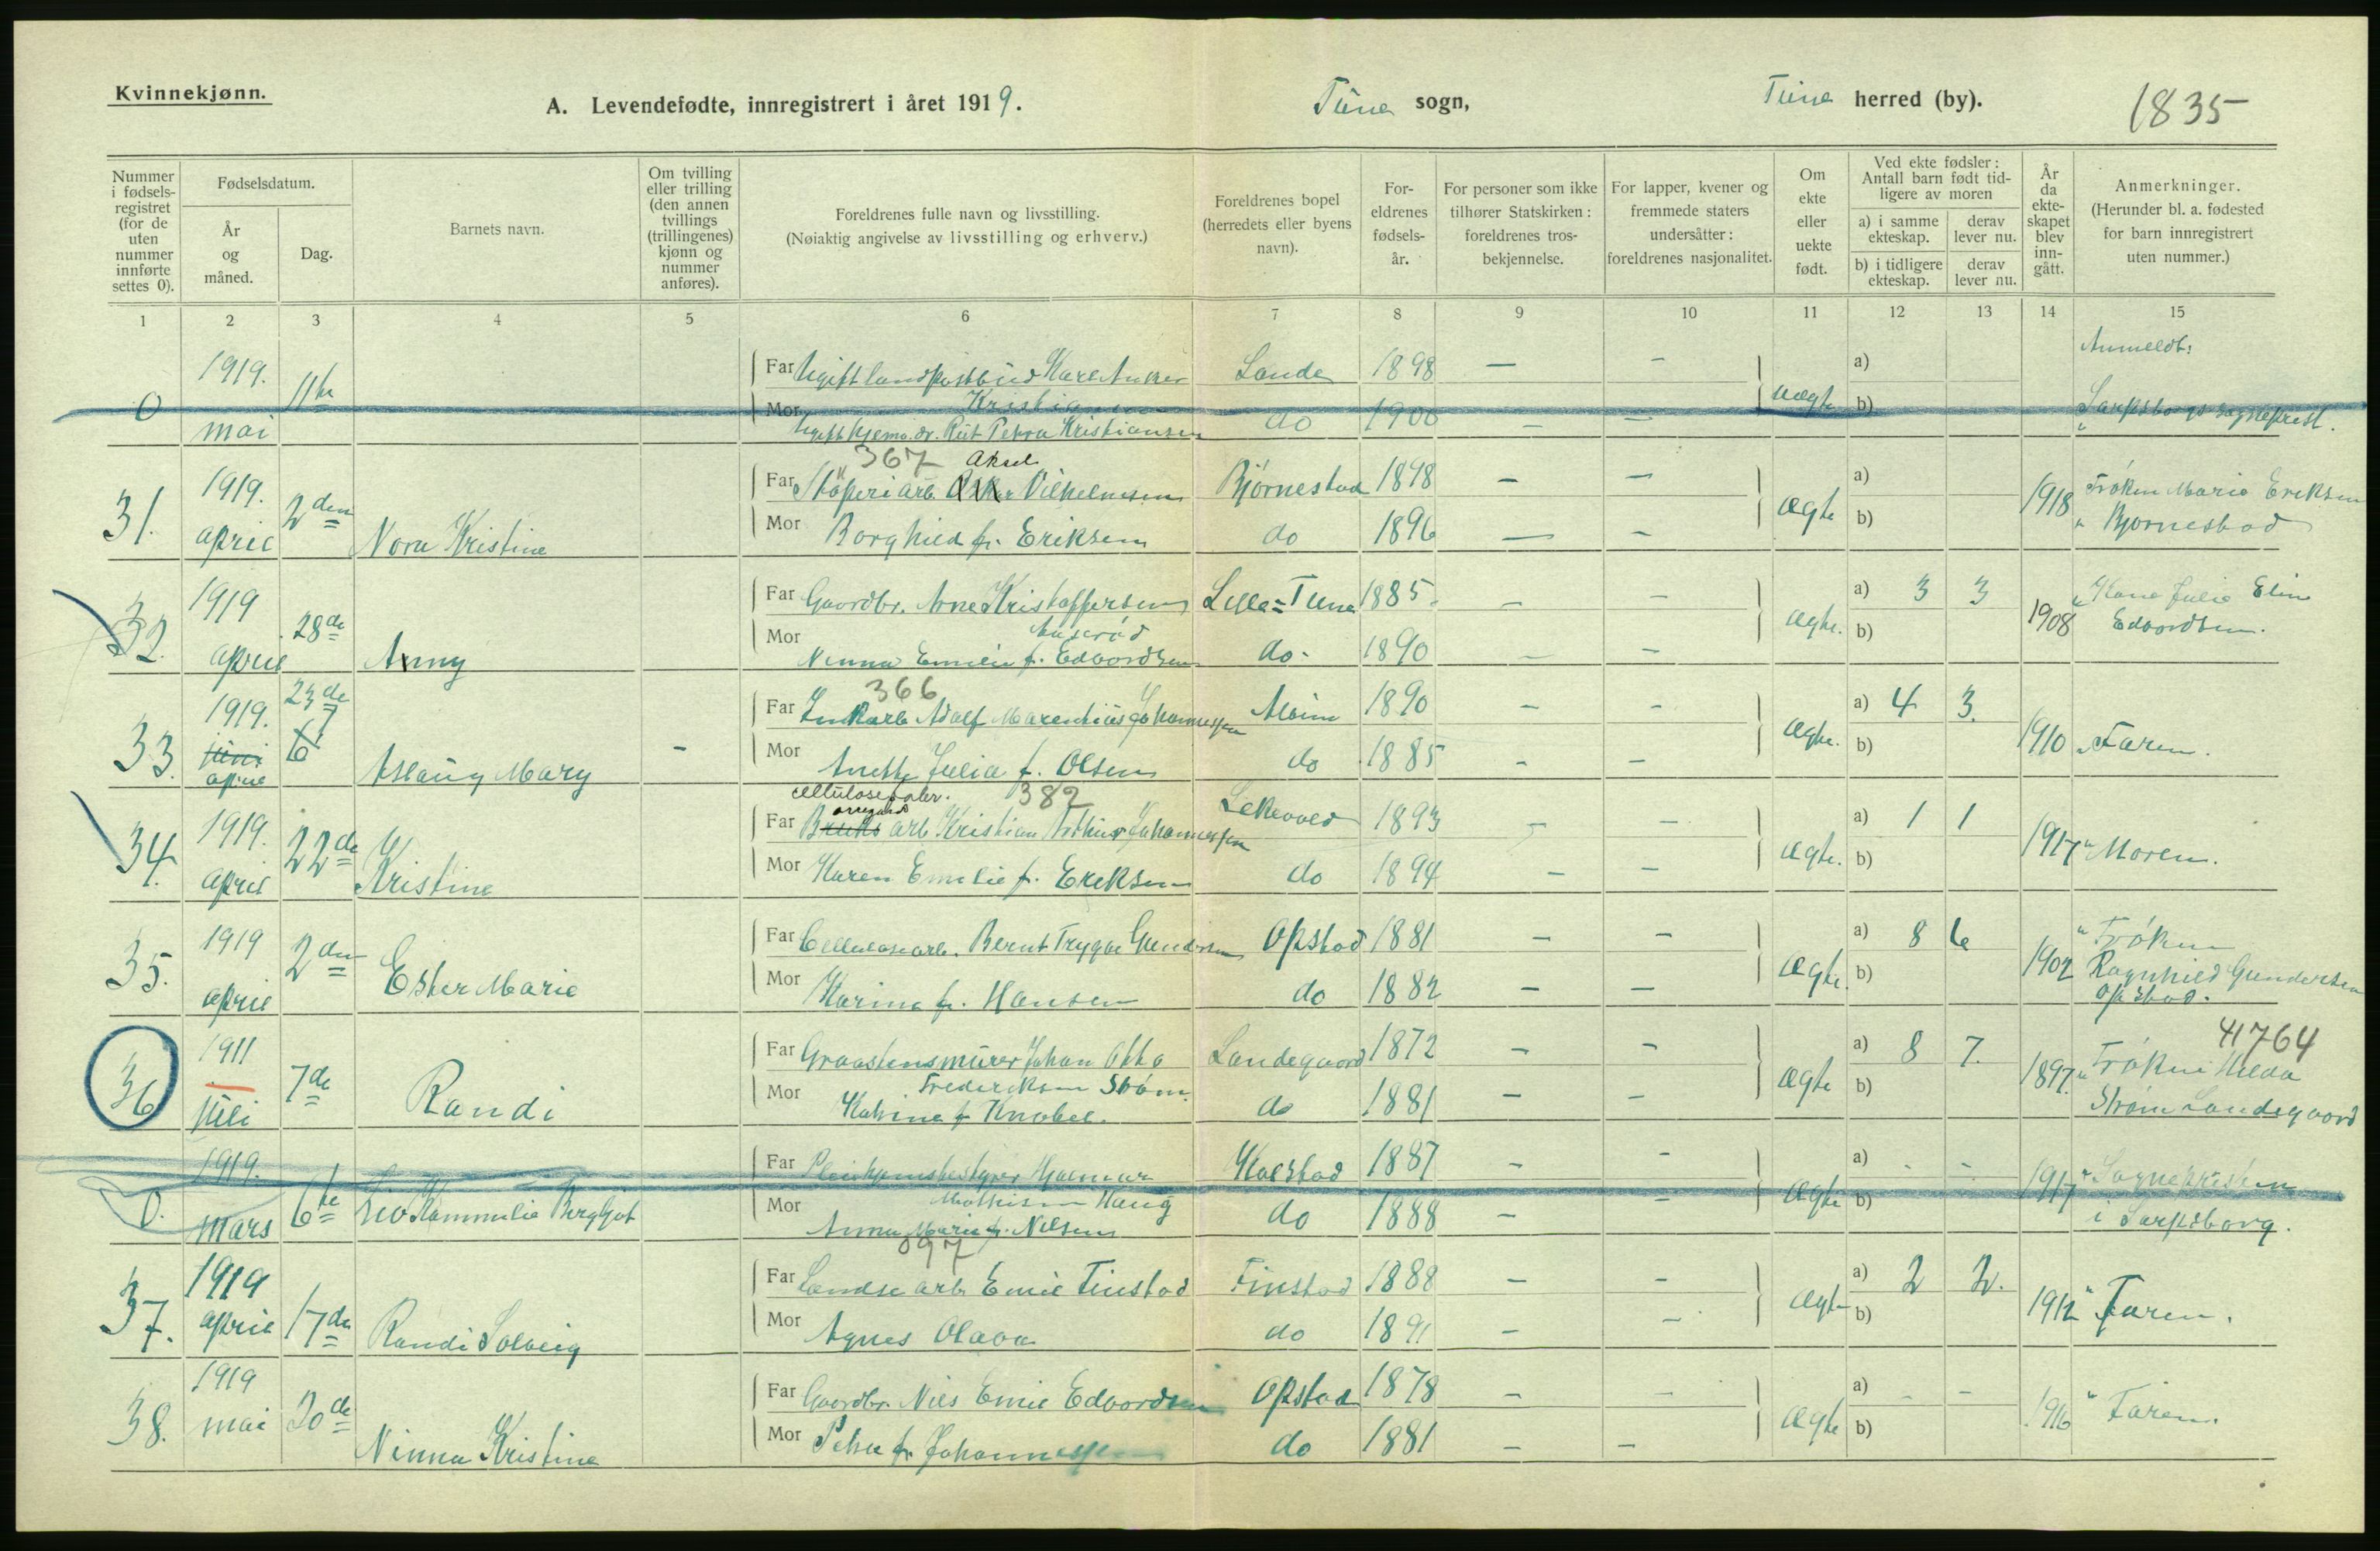 Kvinnekjønn.
A. Levendefødte, innregistrert i året 1919.
Tune sogn,
Tune herred (by).
1835
Nummer i fødsels-registret (for de uten nummer innførte settes 0).
Fødselsdatum.
År og måned.
Dag.
Barnets navn.
Om tvilling eller trilling (den annen tvillings (trillingenes) kjønn og nummer anføres).
Foreldrenes fulle navn og livsstilling.
(Nøiaktig angivelse av livsstilling og erhverv.)
Foreldrenes bopel (herredets eller byens navn).
For-eldrenes fødsels-år.
For personer som ikke tilhører Statskirken: foreldrenes tros-bekjennelse.
For lapper, kvener og fremmede staters undersåtter: foreldrenes nasjonalitet.
Om ekte eller uekte født.
Ved ekte fødsler: Antall barn født tid-ligere av moren
a) i samme ekteskap.
derav lever nu.
b) i tidligere ekteskap.
derav lever nu.
År da ekte-skapet blev inn-gått.
Anmerkninger.
(Herunder bl. a. fødested for barn innregistrert uten nummer.)
1 2 3 4 5 6 7 8 9 10 11 12 13 14 15
Anmeldt:
0 1919. mai 11te
Far Ugift landpostbud Kare Anker Kristiansen Lande 1898 — —
Mor Ugift hjemv. dr. Rut Petra Kristiansen do 1900 — —
uægte a) b)
Sarpsborgs sogneprest.
367 Aksel
31. 1919. april 2den Nora Kristine
Far Støperiarb. Vilhelmsen Bjørnestad 1898 — —
Mor Borghild f. Eriksen do 1896 — —
ægte a) b) 1918
Frøken Marie Eriksen
" Bjørnestad
32. 1919 april 28de Anny
Far Gaardbr. Arne Kristoffersen Lille=Tune 1885. — —
Mor Ninna Emilie f. Edvardsen do. 1890 — —
ægte. a) 3 3 b) 1908
" Kone Julie Elin
Edvardsen.
366
33. 1919. juni april 23de 6 Aslaug Mary
Far Adolf Marentius Johannessen Alvim 1890 — —
Mor Anette Julia f. Olsen do 1885 — —
ægte. a) 4 3. b) 1910 " Faren.
cellulosefabr. 382
34. 1919. april 22de Kristine
Far Bruks arb. Kristian Arthur Johannessen Lekevold 1893 — —
Mor Karen Emilie f. Eriksen do 1894 — —
ægte. a) 1 1 b) 1917 " Moren.
35. 1919 april 2den Ester Marie
Far Cellulosearb. Bernt Trygve Gundersen Opstad 1881 — —
Mor Karine f. Hansen do 1882 — —
ægte. a) 8 6 b) 1902
" Frøken
Ragnhild Gundersen
Opstad.
41764
36 1911 juli 7de Randi
Far Graastensmurer Johan Otto Fredriksen Strøm. Landegaard 1872 — —
Mor Katrine f. Knobel. do 1881 — —
ægte a) 8 7. b) 1897.
" Frøken Hilda
Strøm Landegaard
0. 1919. mars 6te Liv Kammilie Bergljot
Far Pleiehjemsbestyrer Hjalmar Mathisen Haug Kalstad 1887 — —
Mor Anna Marie f. Nilsen do 1888 — —
ægte a) - - b) 1917
" Sognepresten
i Sarpsborg.
097
37. 1919 april 17de Randi Solveig
Far Landse arb. Emil Tinstad Finstad 1888 — —
Mor Agnes Olava do 1891 — —
ægte a) 2 2. b) 1912 " Faren.
38. 1919 mai 20de Ninna Kristine
Far Gaardbr. Nils Emil Edvardsen Opstad 1878 — —
Mor Petra f. Johannessen do 1881 — —
ægte a) - - b) 1916 " Faren.